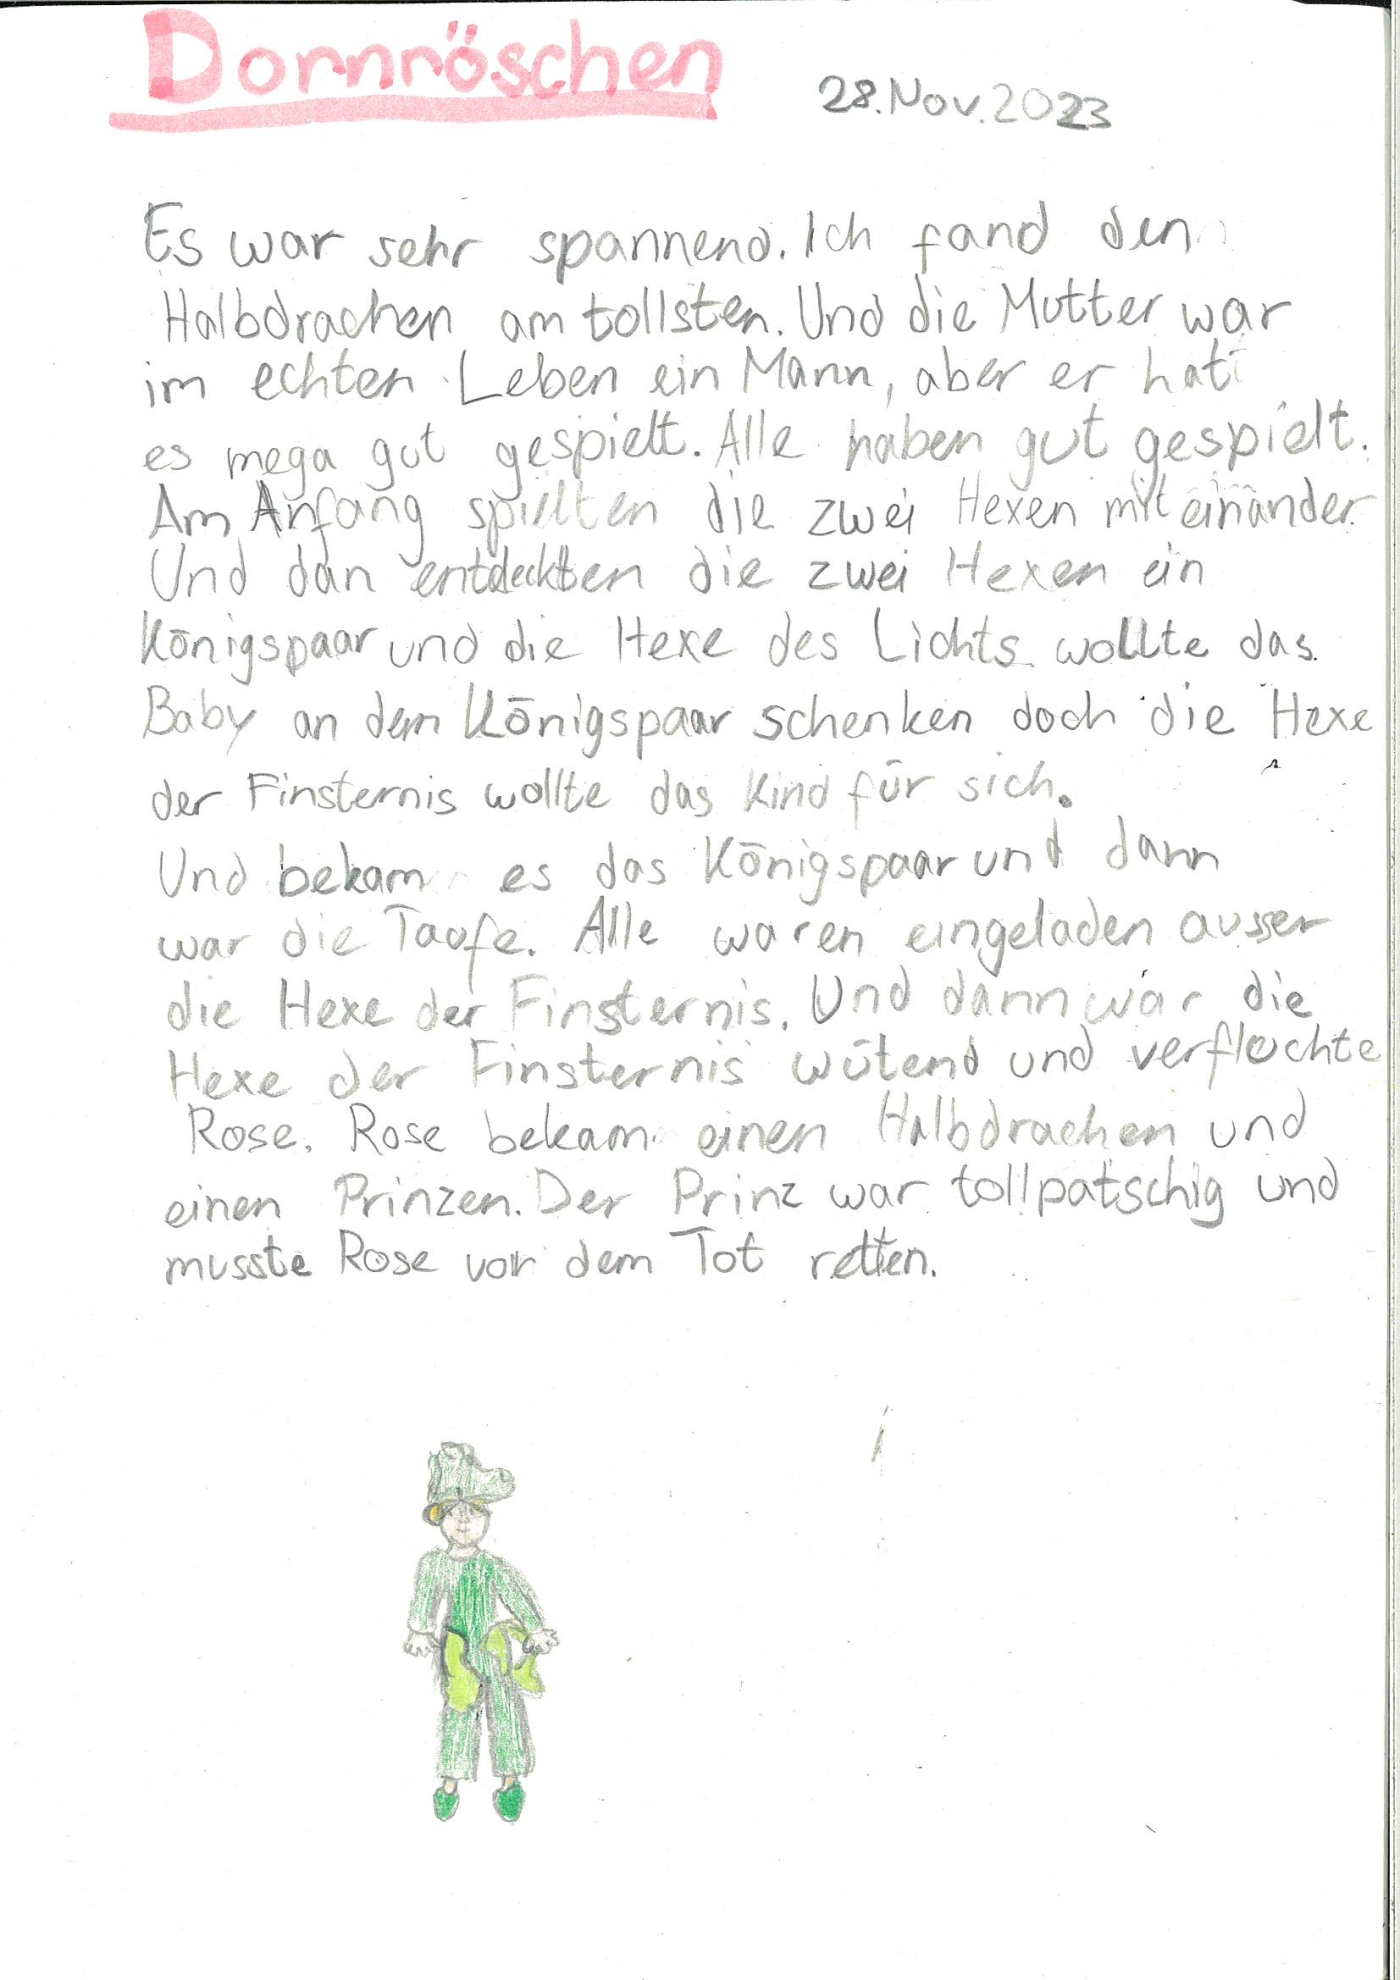 Dornröschen
28.Nov.2023
Es war sehr spannend. Ich fand den
Halbdrachen am tollsten. Und die Mutter war
im echten Leben ein Mann, aber er hat
es mega gut gespielt. Alle haben gut gespielt.
Am Anfang spielten die zwei Hexen miteinander.
Und dan entdeckten die zwei Hexen ein
Königspaar und die Hexe des Lichts wollte das
Baby an dem Königspaar schenken doch die Hexe
der Finsternis wollte das Kind für sich.
Und bekam es das Königspaar und dann
war die Taufe. Alle waren eingeladen ausser
die Hexe der Finsternis. Und dann war die
Hexe der Finsternis wütend und verfluchte
Rose. Rose bekam einen Halbdrachen und
einen Prinzen. Der Prinz war tollpatschig und
musste Rose vor dem Tot retten.